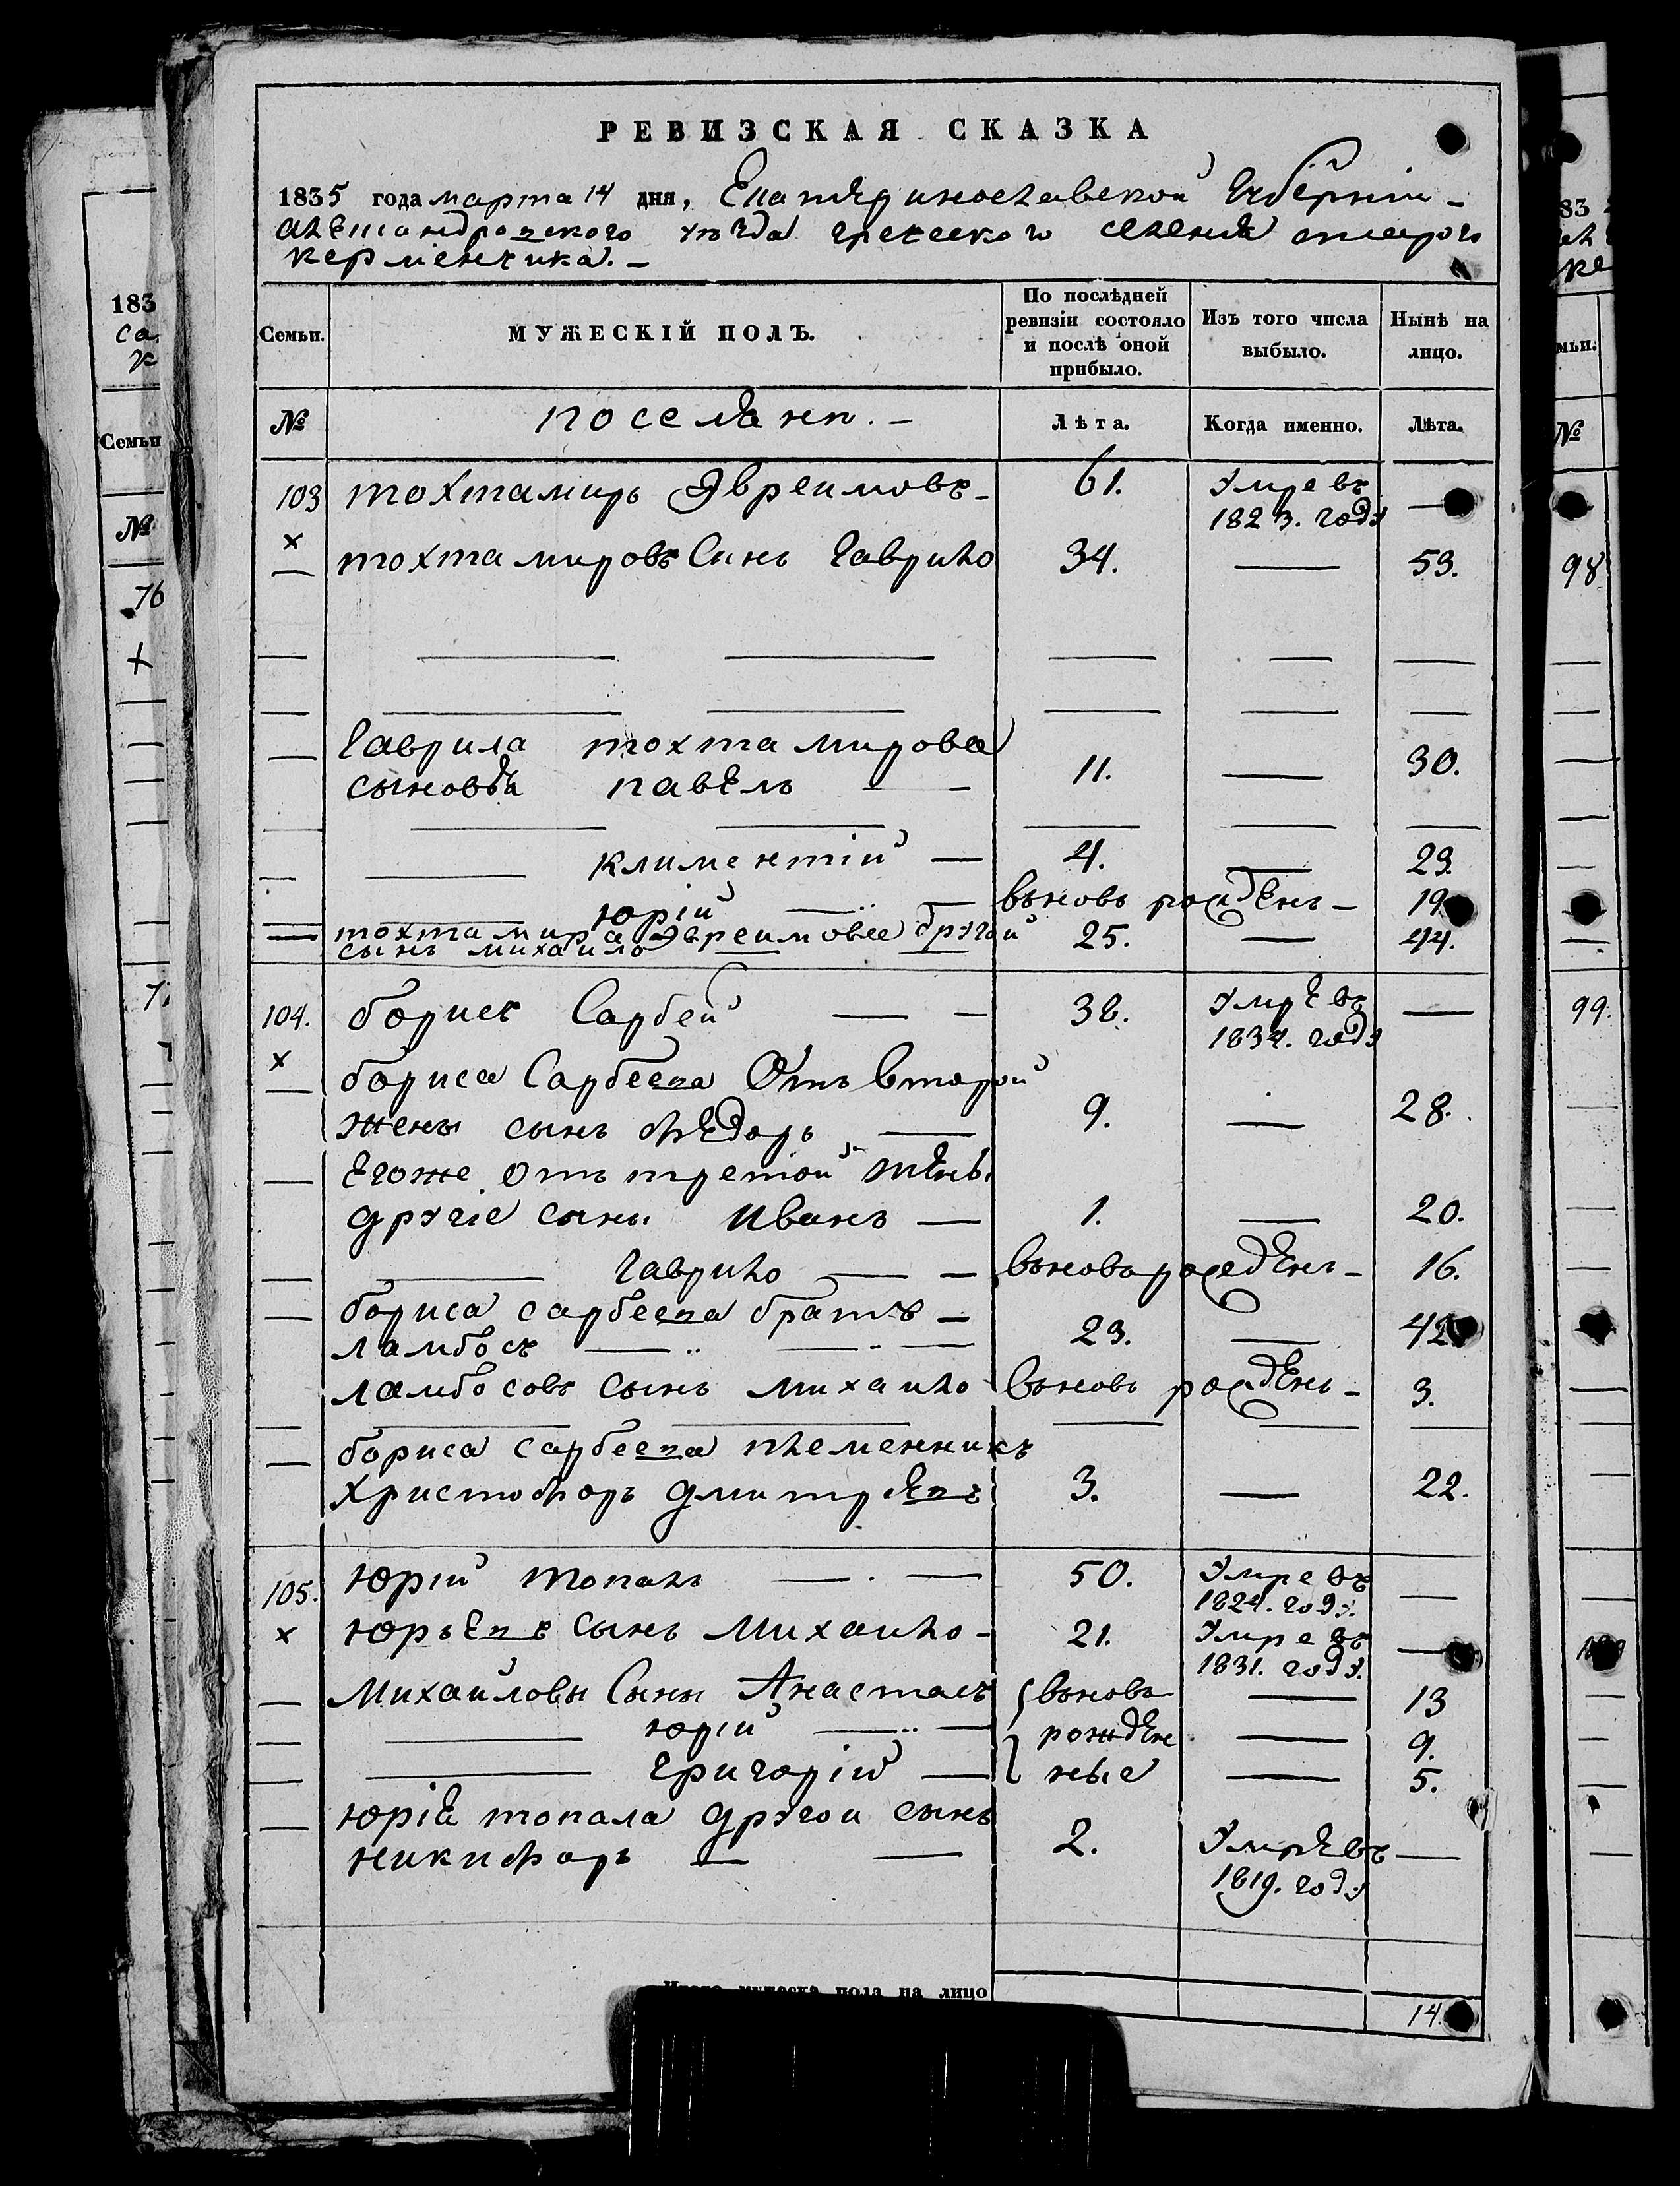 РЕВИЗСКАЯ СКАЗКА
1835 года марта 14 дня, Екатеринославской Губерніи -
александровского уезда греческого селения старого
керменчика. -
Семьи. МУЖЕСКІЙ ПОЛЪ. По послѣдней ревизіи состояло и послѣ оной прибыло. Изъ того числа выбыло. Нынѣ на лицо.
№ поселяне. - Лѣта. Когда именно. Лѣта.
103 тохтамиръ Эвреимовъ - 61. Умре въ 1823. году —
× тохтамировъ Синъ Гаврило 34. — 53.
Гаврила тохтамирова
сыновья павелъ — - 11. — 30.
— климентій — 4. — 23.
— юрій — вьновь рожденъ - 19.
тохтамира Эвреимова другой
сынъ михаило — — 25. — 44.
104. борисъ Сарбей — - 38. Умре въ 1834. году —
× бориса Сарбеева Отъ второй
жены сынъ федоръ — 9. — 28.
Егоже отъ третой жены
другіе сыны иванъ — 1. — 20.
— Гаврило — - вьновь рожденъ - 16.
бориса сарбеева братъ -
ламбосъ — 23. — 42
ламбосовъ сынъ михаило вьновь рожденъ - 3.
бориса сарбеева племенникъ
христофоръ дмитревъ 3. — 22.
105. юрій топалъ — . — 50. Умре въ 1824. году. —
× юрьевъ сынъ михаило - 21. Умре въ 1831. году. —
Михайловы Сыны Анастасъ { вьновь — 13
— юрій — рожден — 9.
— Григорій — ные — 5.
юрія топала другой сынъ
никифоръ — — 2. Умре въ 1819. году —
мужеска пола на лицо 14.
183
са
Семьи
№
76
+
7
83
ке
мьи.
№
98
99.